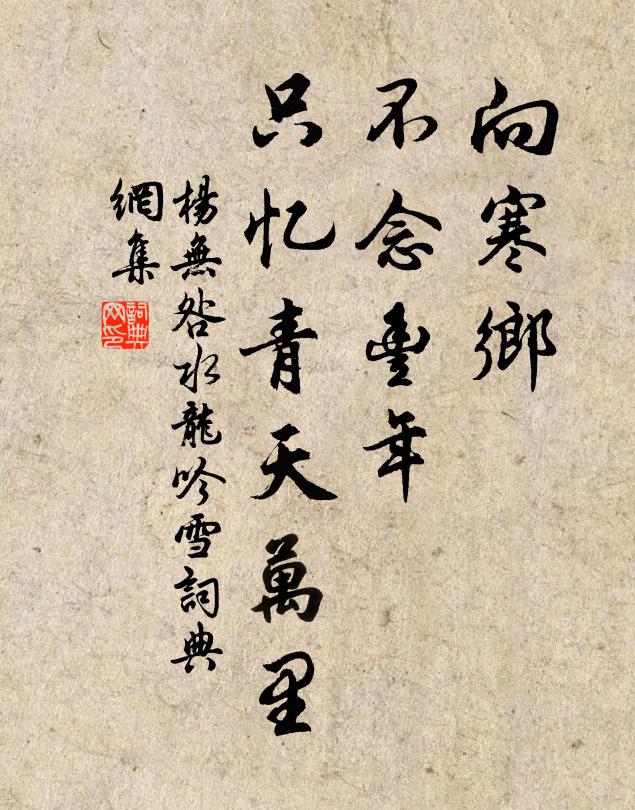 向寒鄉
不念豊年
只忆青天萬里
楊無咎水龍吟雪詞典
網集
詞典
网印